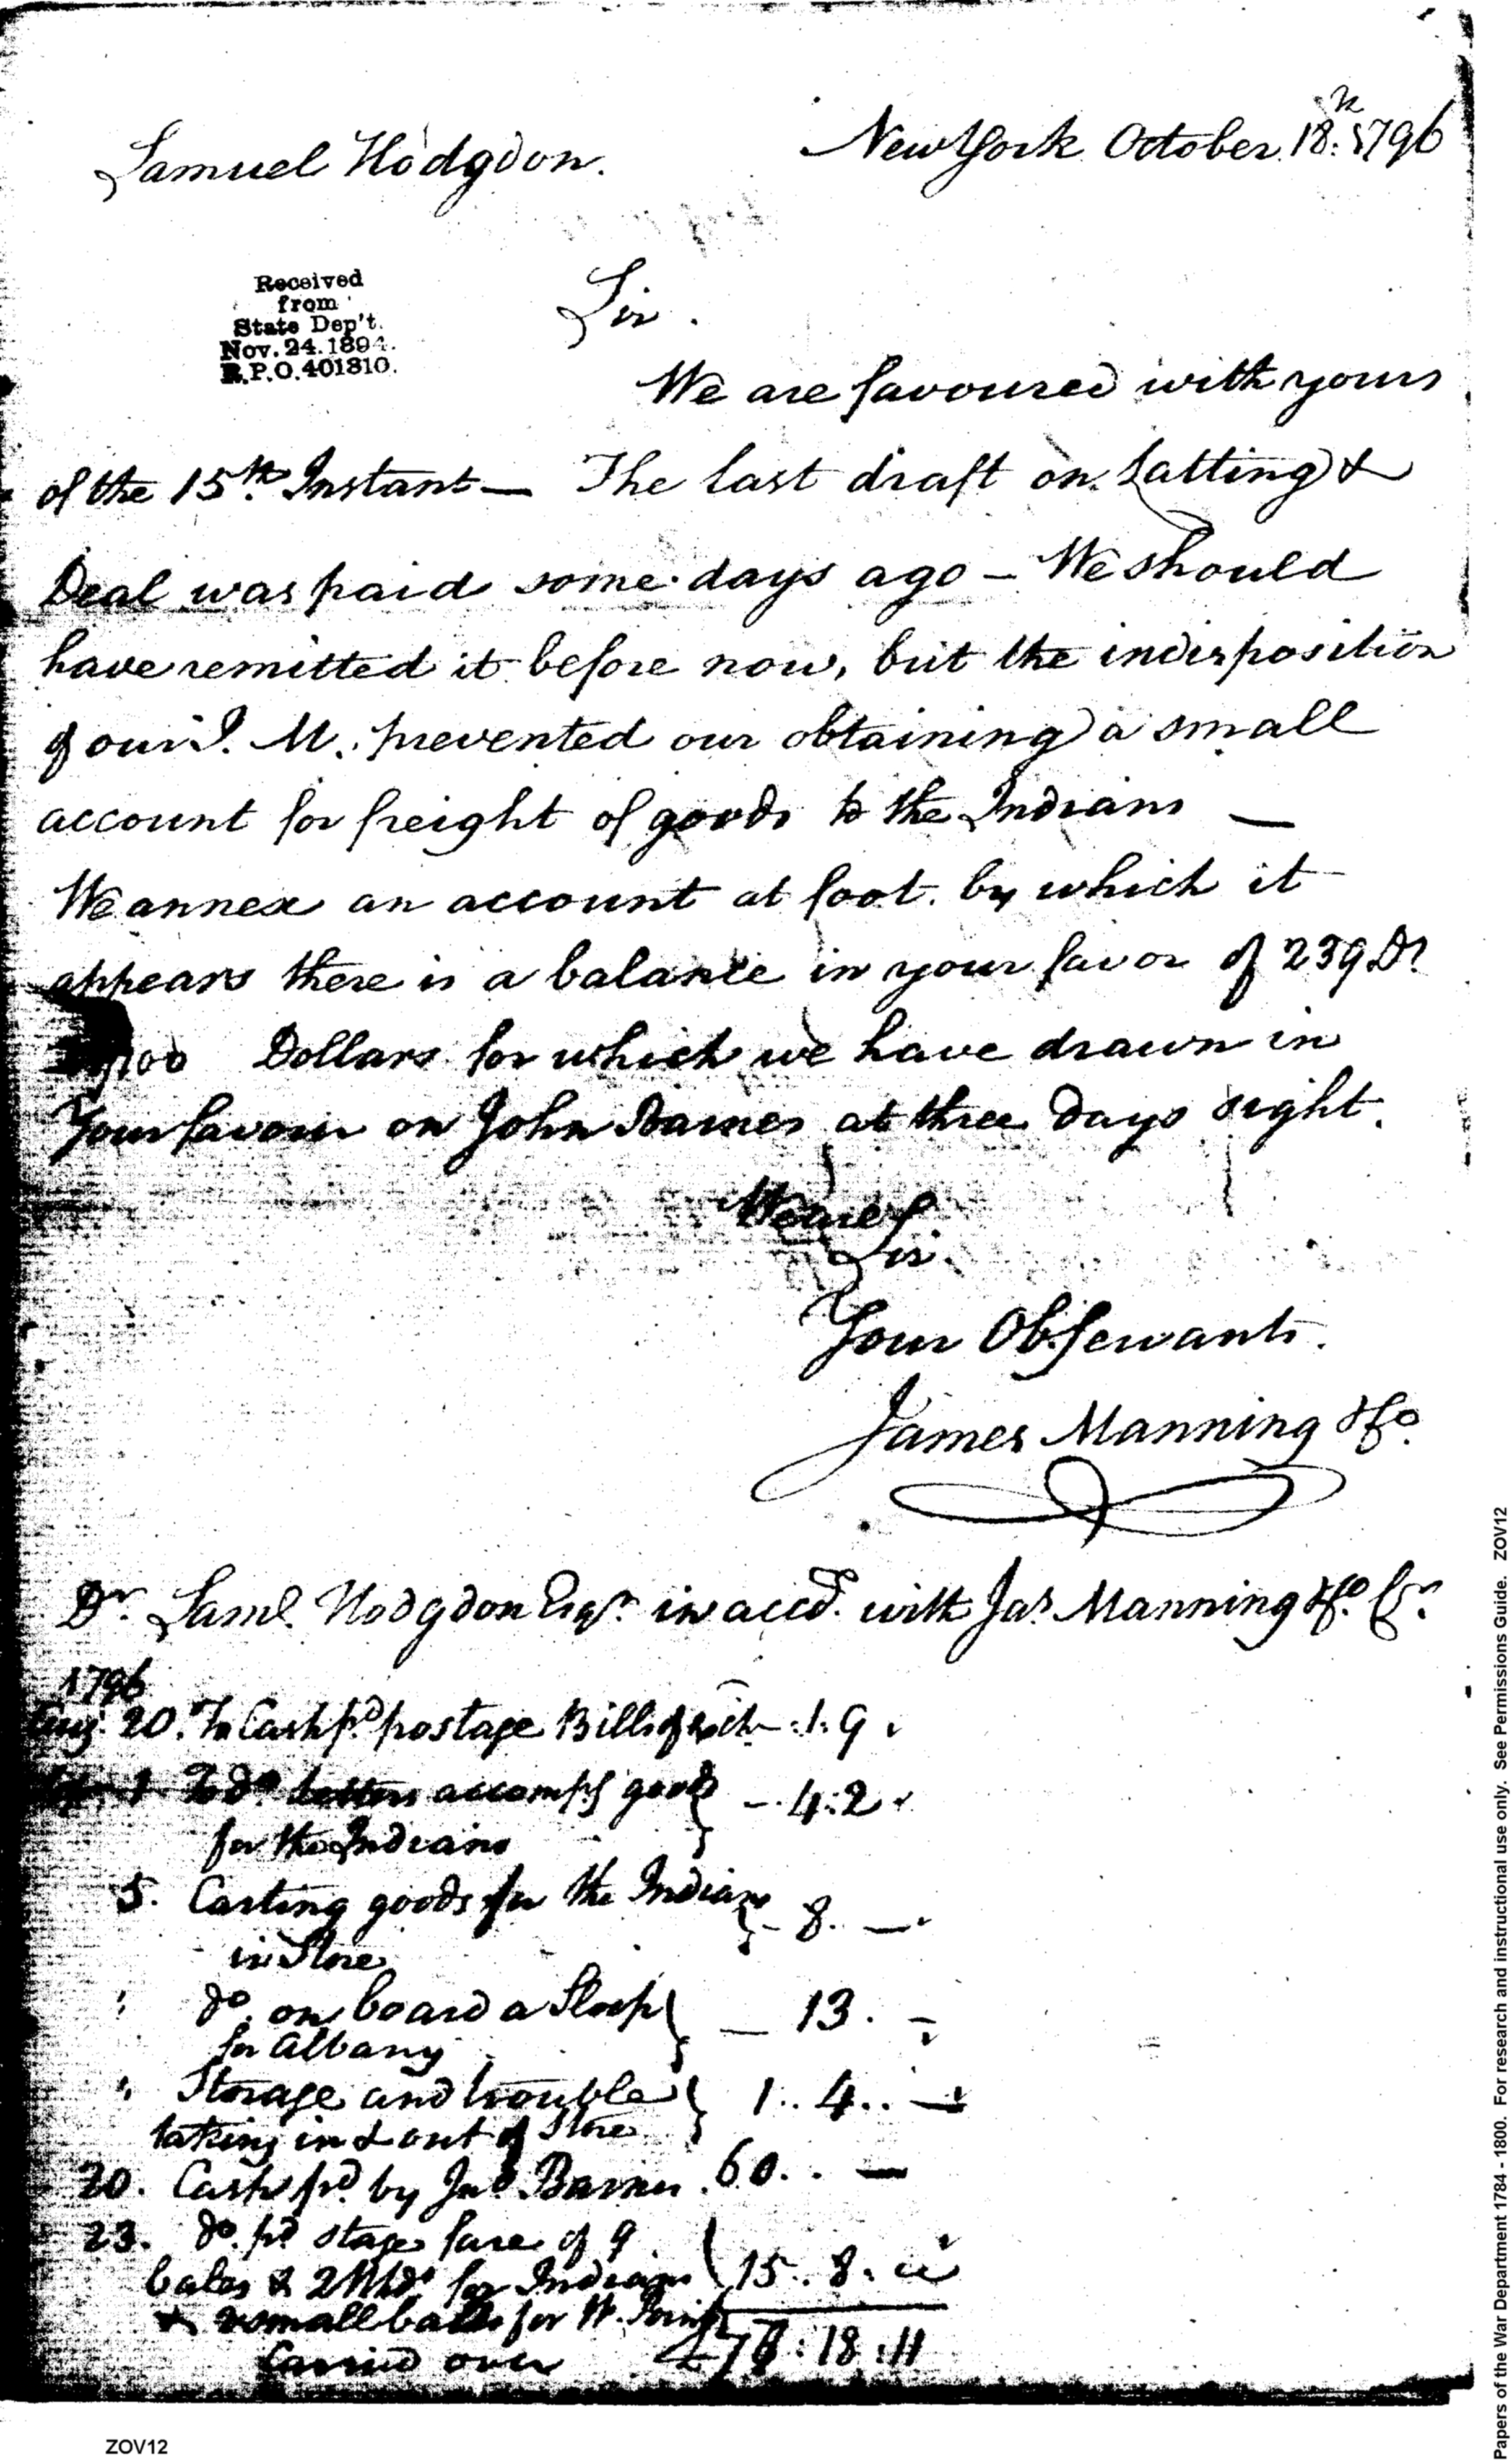 Samuel Hodgdon.
New York October 18th: 1796
Received
from
State Dep't.
Nov. 24. 1894.
R.P.O. 401310.
Sir.
We are favoured with yours
of the 15th. Instant — The last draft on Latting &
Deal was paid some days ago — We should
have remitted it before now, but the indisposition
of our J. M. prevented our obtaining a small
account for freight of goods to the Indians —
We annex an account at foot. by which it
appears there is a balance in your favor of 239 Drs
/100 Dollars for which we have drawn in
Your favour on John Barnes at three days sight.
We are
Sir.
Your Ob. Servants.
James Manning & Co.
Dr. Saml. Hodgdon Esqr. in accot. with Jas. Manning & Co. Cr.
1796
Aug. 20. To Cash pd. postage Bills of — . 1. 9
1 To do. letters accompg goods } — . 4 : 2
for the Indians
5. Carting goods for the Indians } - 8. —
in Store
" do. on board a Sloop } — 13. -
for Albany
" Storage and trouble } 1.. 4.. —
taking in & out of Store
20. Cash pd. by Jno. Barnes. 60.. —
23. do. pd stage fare of 9
bales & 2 Hhds. for Indians ( 15.. 8.
& small bales for W. Point
Carried over £ : 18 : 11
Papers of the War Department 1784 - 1800. For research and instructional use only. See Permissions Guide. ZOV12
ZOV12